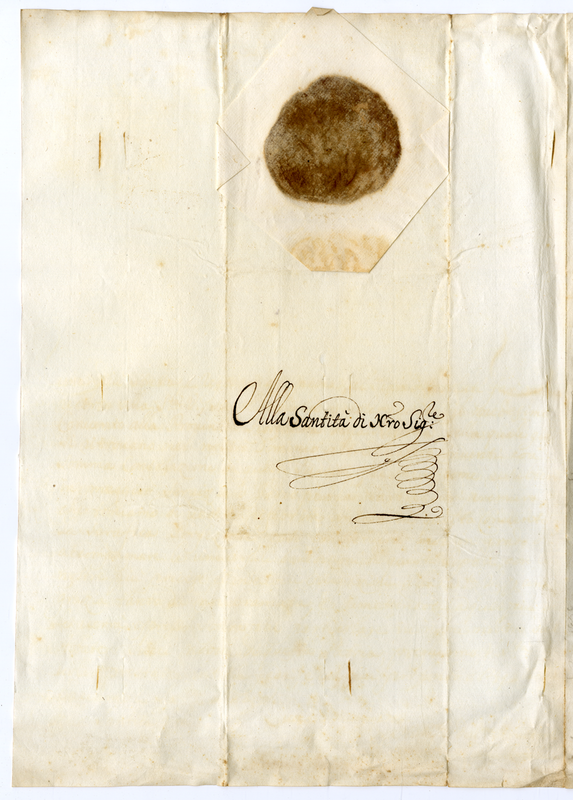 Alla Santità di Nro Sig:re